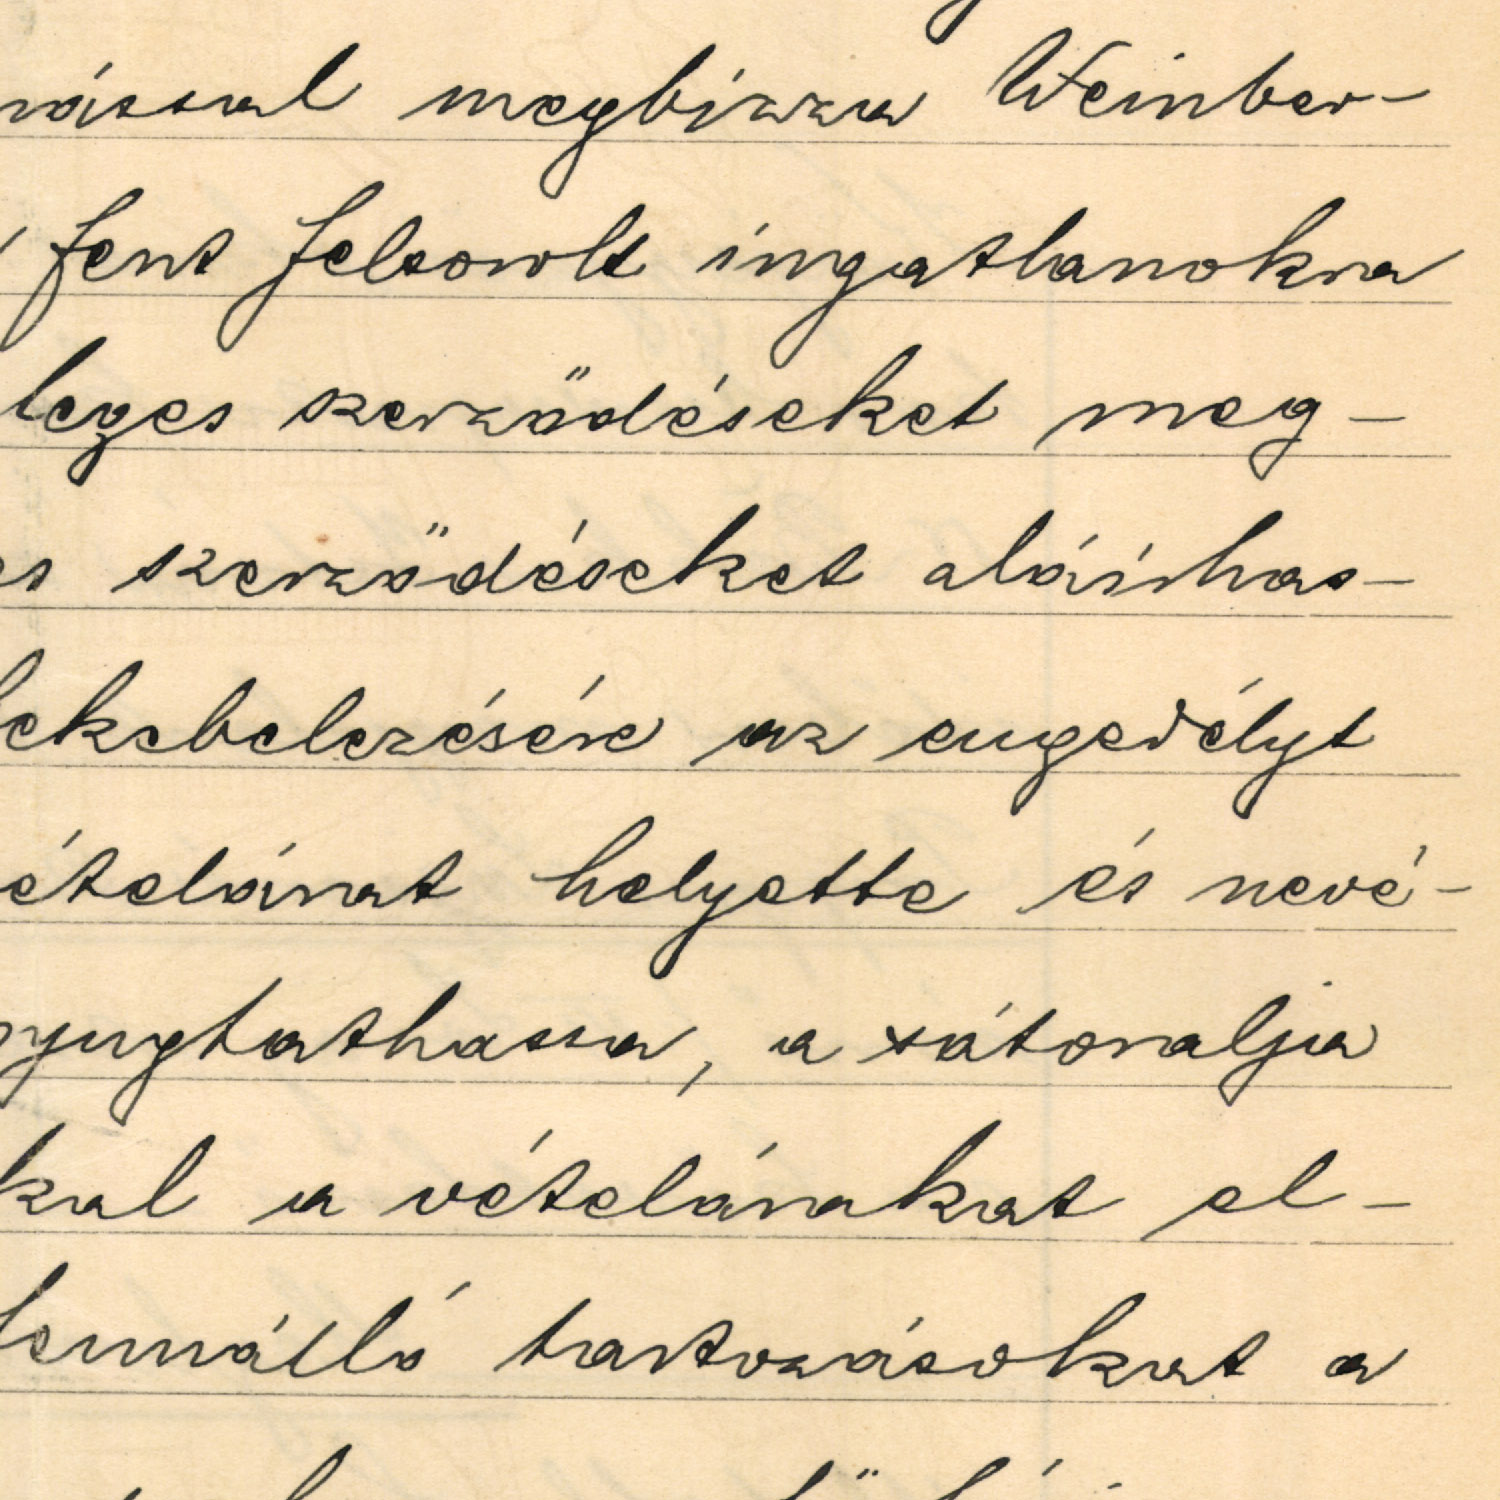 rással megbizza Weinber-
fent felsorolt ingatlanokra
leges szerződéseket meg-
es szerződéseket aláirhas-
bekebelezésére az engedélyt
ételárat helyette és nevé-
nyugtathassa, a sátoralja
kal a vételárakat el-
fennálló tartozásokat a